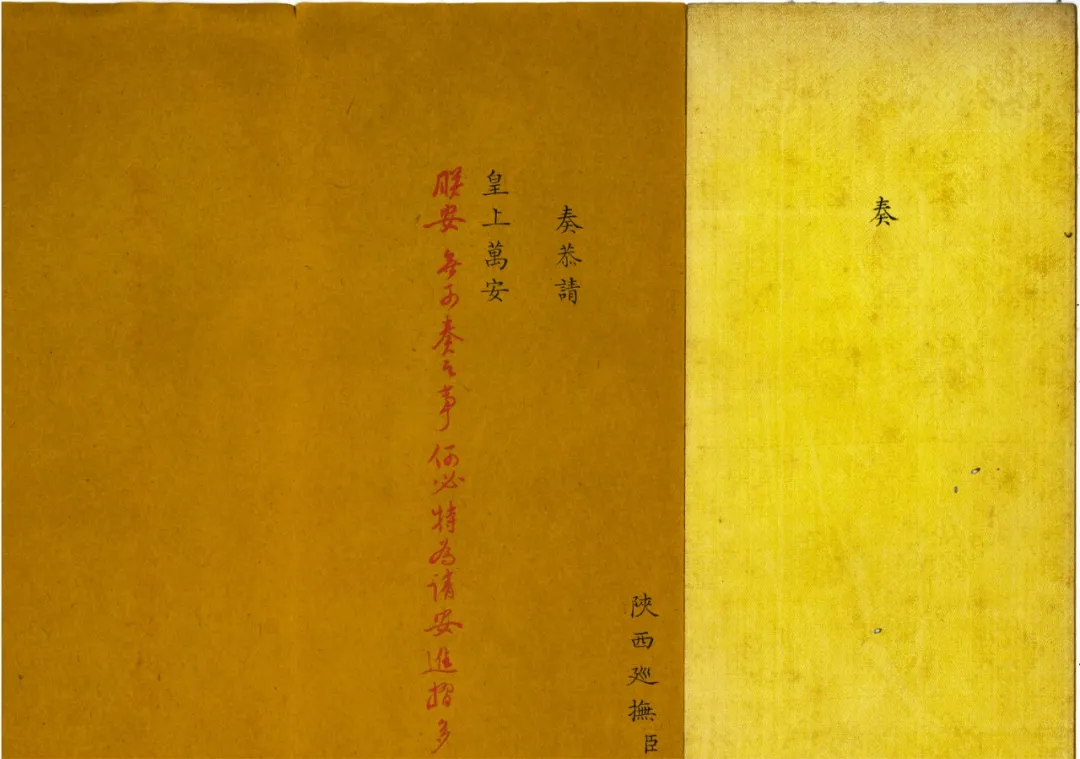 奏
陝西巡撫臣
奏恭請
皇上萬安
朕安無可奏之事何必特為請安進摺多